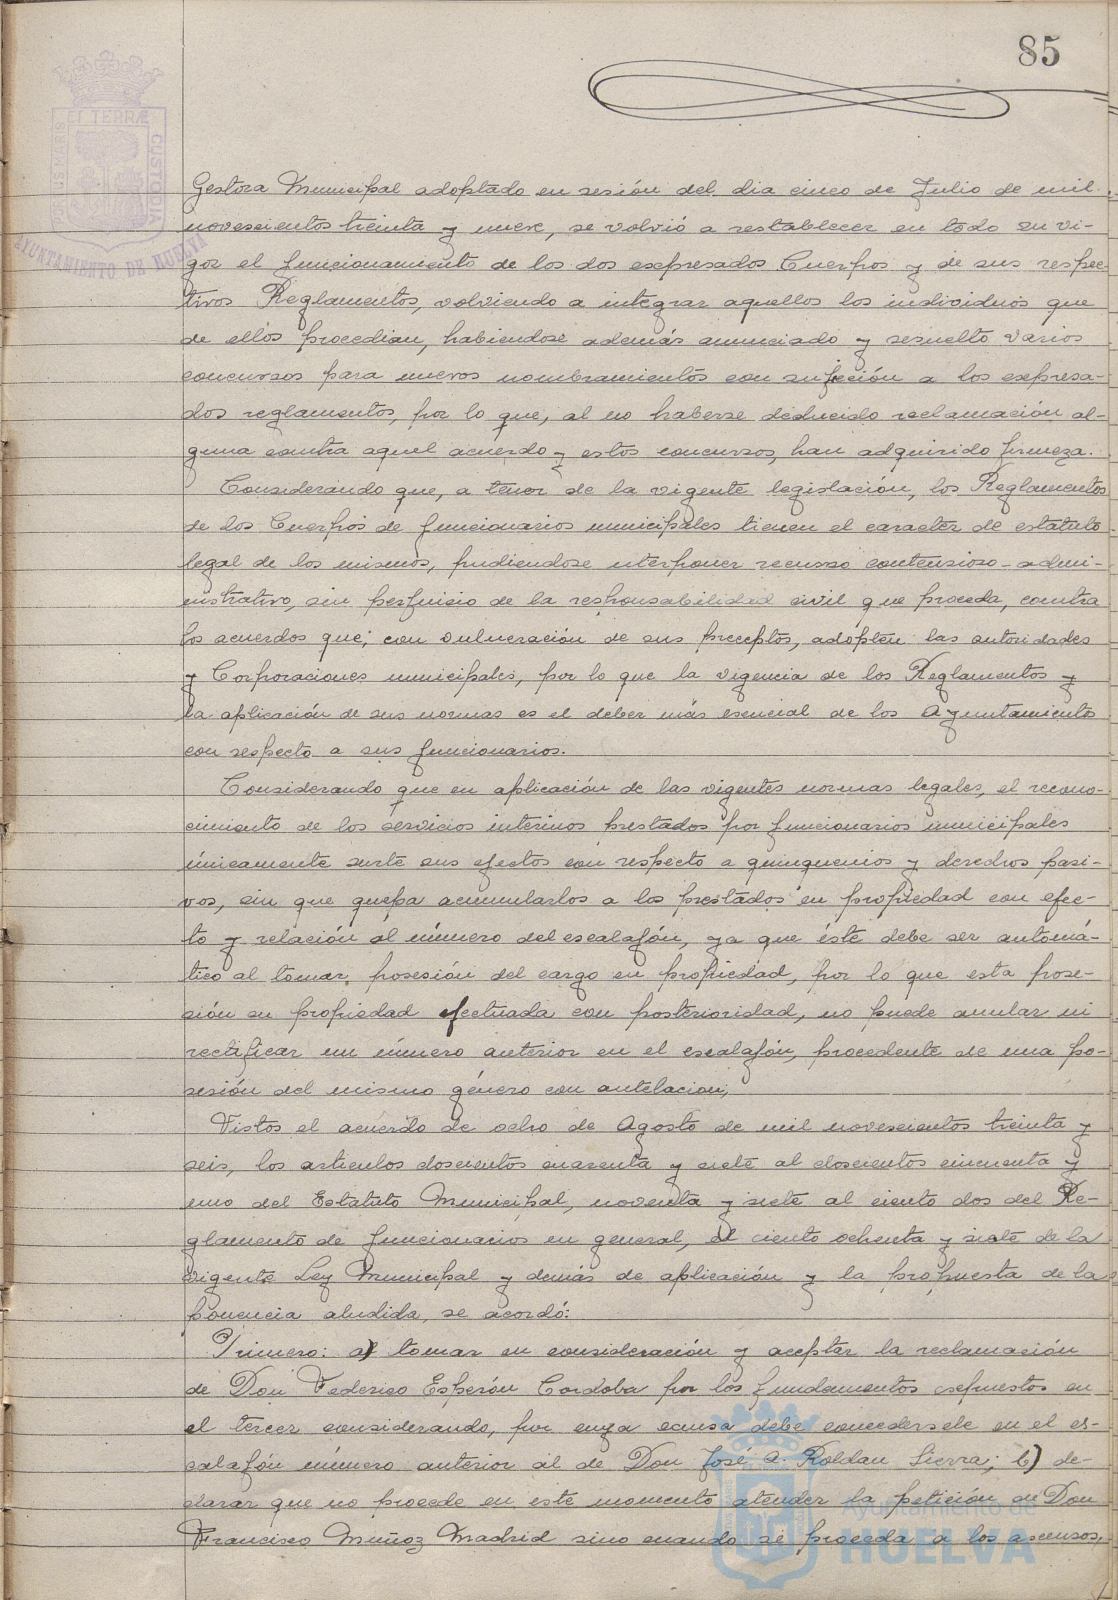 85
PORTUS MARIS ET TERRÆ CUSTODIA
AYUNTAMIENTO DE HUELVA
Gestora Municipal adoptado en sesión del dia cinco de Julio de mil
novescientos treinta y nueve, se volvió a restablecer en todo su vi-
gor el funcionamiento de los dos expresados Cuerpos y de sus respec-
tivos Reglamentos, volviendo a integrar aquellos los individuos que
de ellos procedian, habiendose además anunciado y resuelto varios
concursos para nuevos nombramientos con sujeción a los expresa-
dos reglamentos, por lo que, al no haberse deducido reclamación al-
guna contra aquel acuerdo y estos concursos, han adquirido firmeza.
Considerando que, a tenor de la vigente legislación, los Reglamentos
de los Cuerpos de funcionarios municipales tienen el caracter de estatuto
legal de los mismos, pudiendose interponer recurso contensioso-admi-
nistrativo, sin perjuicio de la responsabilidad civil que proceda, contra
los acuerdos que, con vulneración de sus preceptos, adopten las autoridades
y Corporaciones municipales, por lo que la vigencia de los Reglamentos y
la aplicación de sus normas es el deber más esencial de los Ayuntamientos
con respecto a sus funcionarios.
Considerando que en aplicación de las vigentes normas legales, el recono-
cimiento de los servicios interinos prestados por funcionarios municipales
únicamente surte sus efectos con respecto a quinquenios y derechos pasi-
vos, sin que quepa acumularlos a los prestados en propiedad con efec-
to y relación al número del escalafón, ya que éste debe ser automá-
tico al tomar posesión del cargo en propiedad, por lo que esta pose-
sión en propiedad efectuada con posterioridad, no puede anular ni
rectificar un número anterior en el escalafón, procedente de una po-
sesión del mismo género con antelacion;
Vistos el acuerdo de ocho de Agosto de mil novescientos treinta y
seis, los articulos doscientos cuarenta y siete al doscientos cincuenta y
uno del Estatuto Municipal, noventa y siete al ciento dos del Re-
glamento de funcionarios en general, el ciento ochenta y siete de la
vigente Ley Municipal y demás de aplicación y la propuesta de la
ponencia aludida, se acordó:
Primero: a) tomar en consideración y aceptar la reclamación
de Don Federico Esperón Cordoba por los fundamentos expuestos en
el tercer considerando, por cuya causa debe concedersele en el es-
calafón número anterior al de Don José A. Roldan Sierra; b) de-
clarar que no procede en este momento atender la petición de Don
Francisco Muñoz Madrid sino cuando se proceda a los ascensos,
Ayuntamiento de
HUELVA